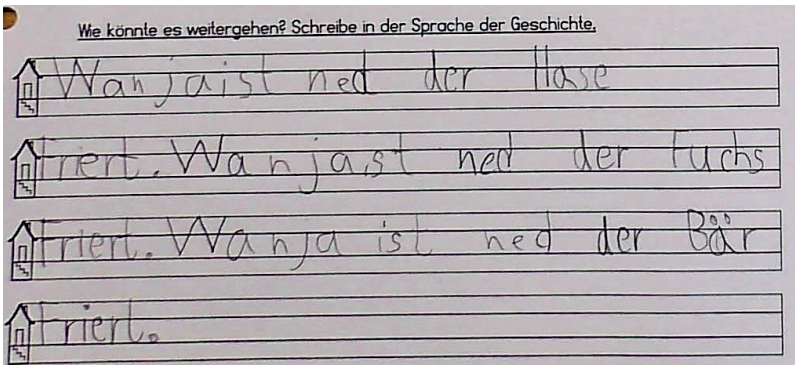 Wie könnte es weitergehen? Schreibe in der Sprache der Geschichte.
Wanjaist ned der Hase
friert. Wanjast ned der Fuchs
friert. Wanja ist ned der Bär
friert.